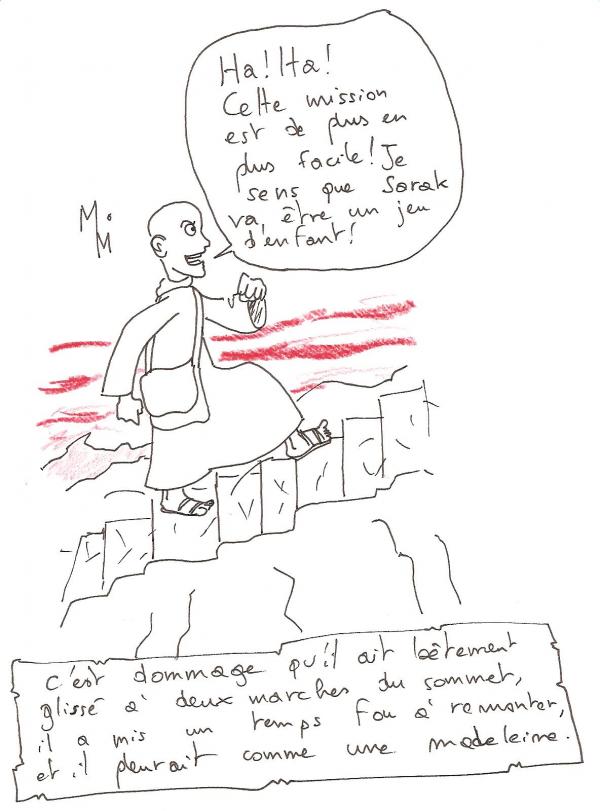 Ha! Ha!
Cette mission
est de plus en
plus facile! Je
sens que Sarak
va être un jeu
d'enfant!
M.
M
c'est dommage qu'il ait bêtement
glissé à deux marches du sommet,
il a mis un temps fou à remonter,
et il pleurait comme une madeleine.